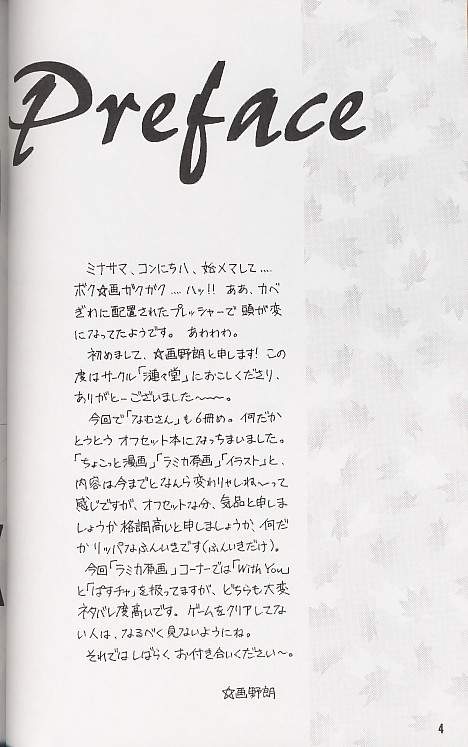 Preface
ミナサマ、コンにち八、始メマして....
ボク☆画ガクガク....ハッ!! ああ、カベ
ぎわに配置されたプレッシャーで頭が変
になってたようです。 あわわわ。
初めまして、☆画野朗と申します! この
度はサークル「漣々堂」におこしくださり、
ありがとーございました〜〜〜。
今回で「なむさん」も6冊め。何だか
とうとう オフセット本になっちまいました。
「ちょこっと漫画」「ラミカ原画」「イラスト」と、
内容は今までとなんら変わりゃしね〜って
感じですが、オフセットな分、気品と申しま
しょうか格調高いと申しましょうか、何だ
かリッパなふんいきです(ふんいきだけ)。
今回「ラミカ原画」コーナーでは「With You」
と「ぱすチャ」を扱ってますが、どちらも大変
ネタバレ度高いです。ゲームをクリアしてな
い人は、なるべく見ないようにね。
それではしばらく お付き合いください〜。
☆画野朗
4